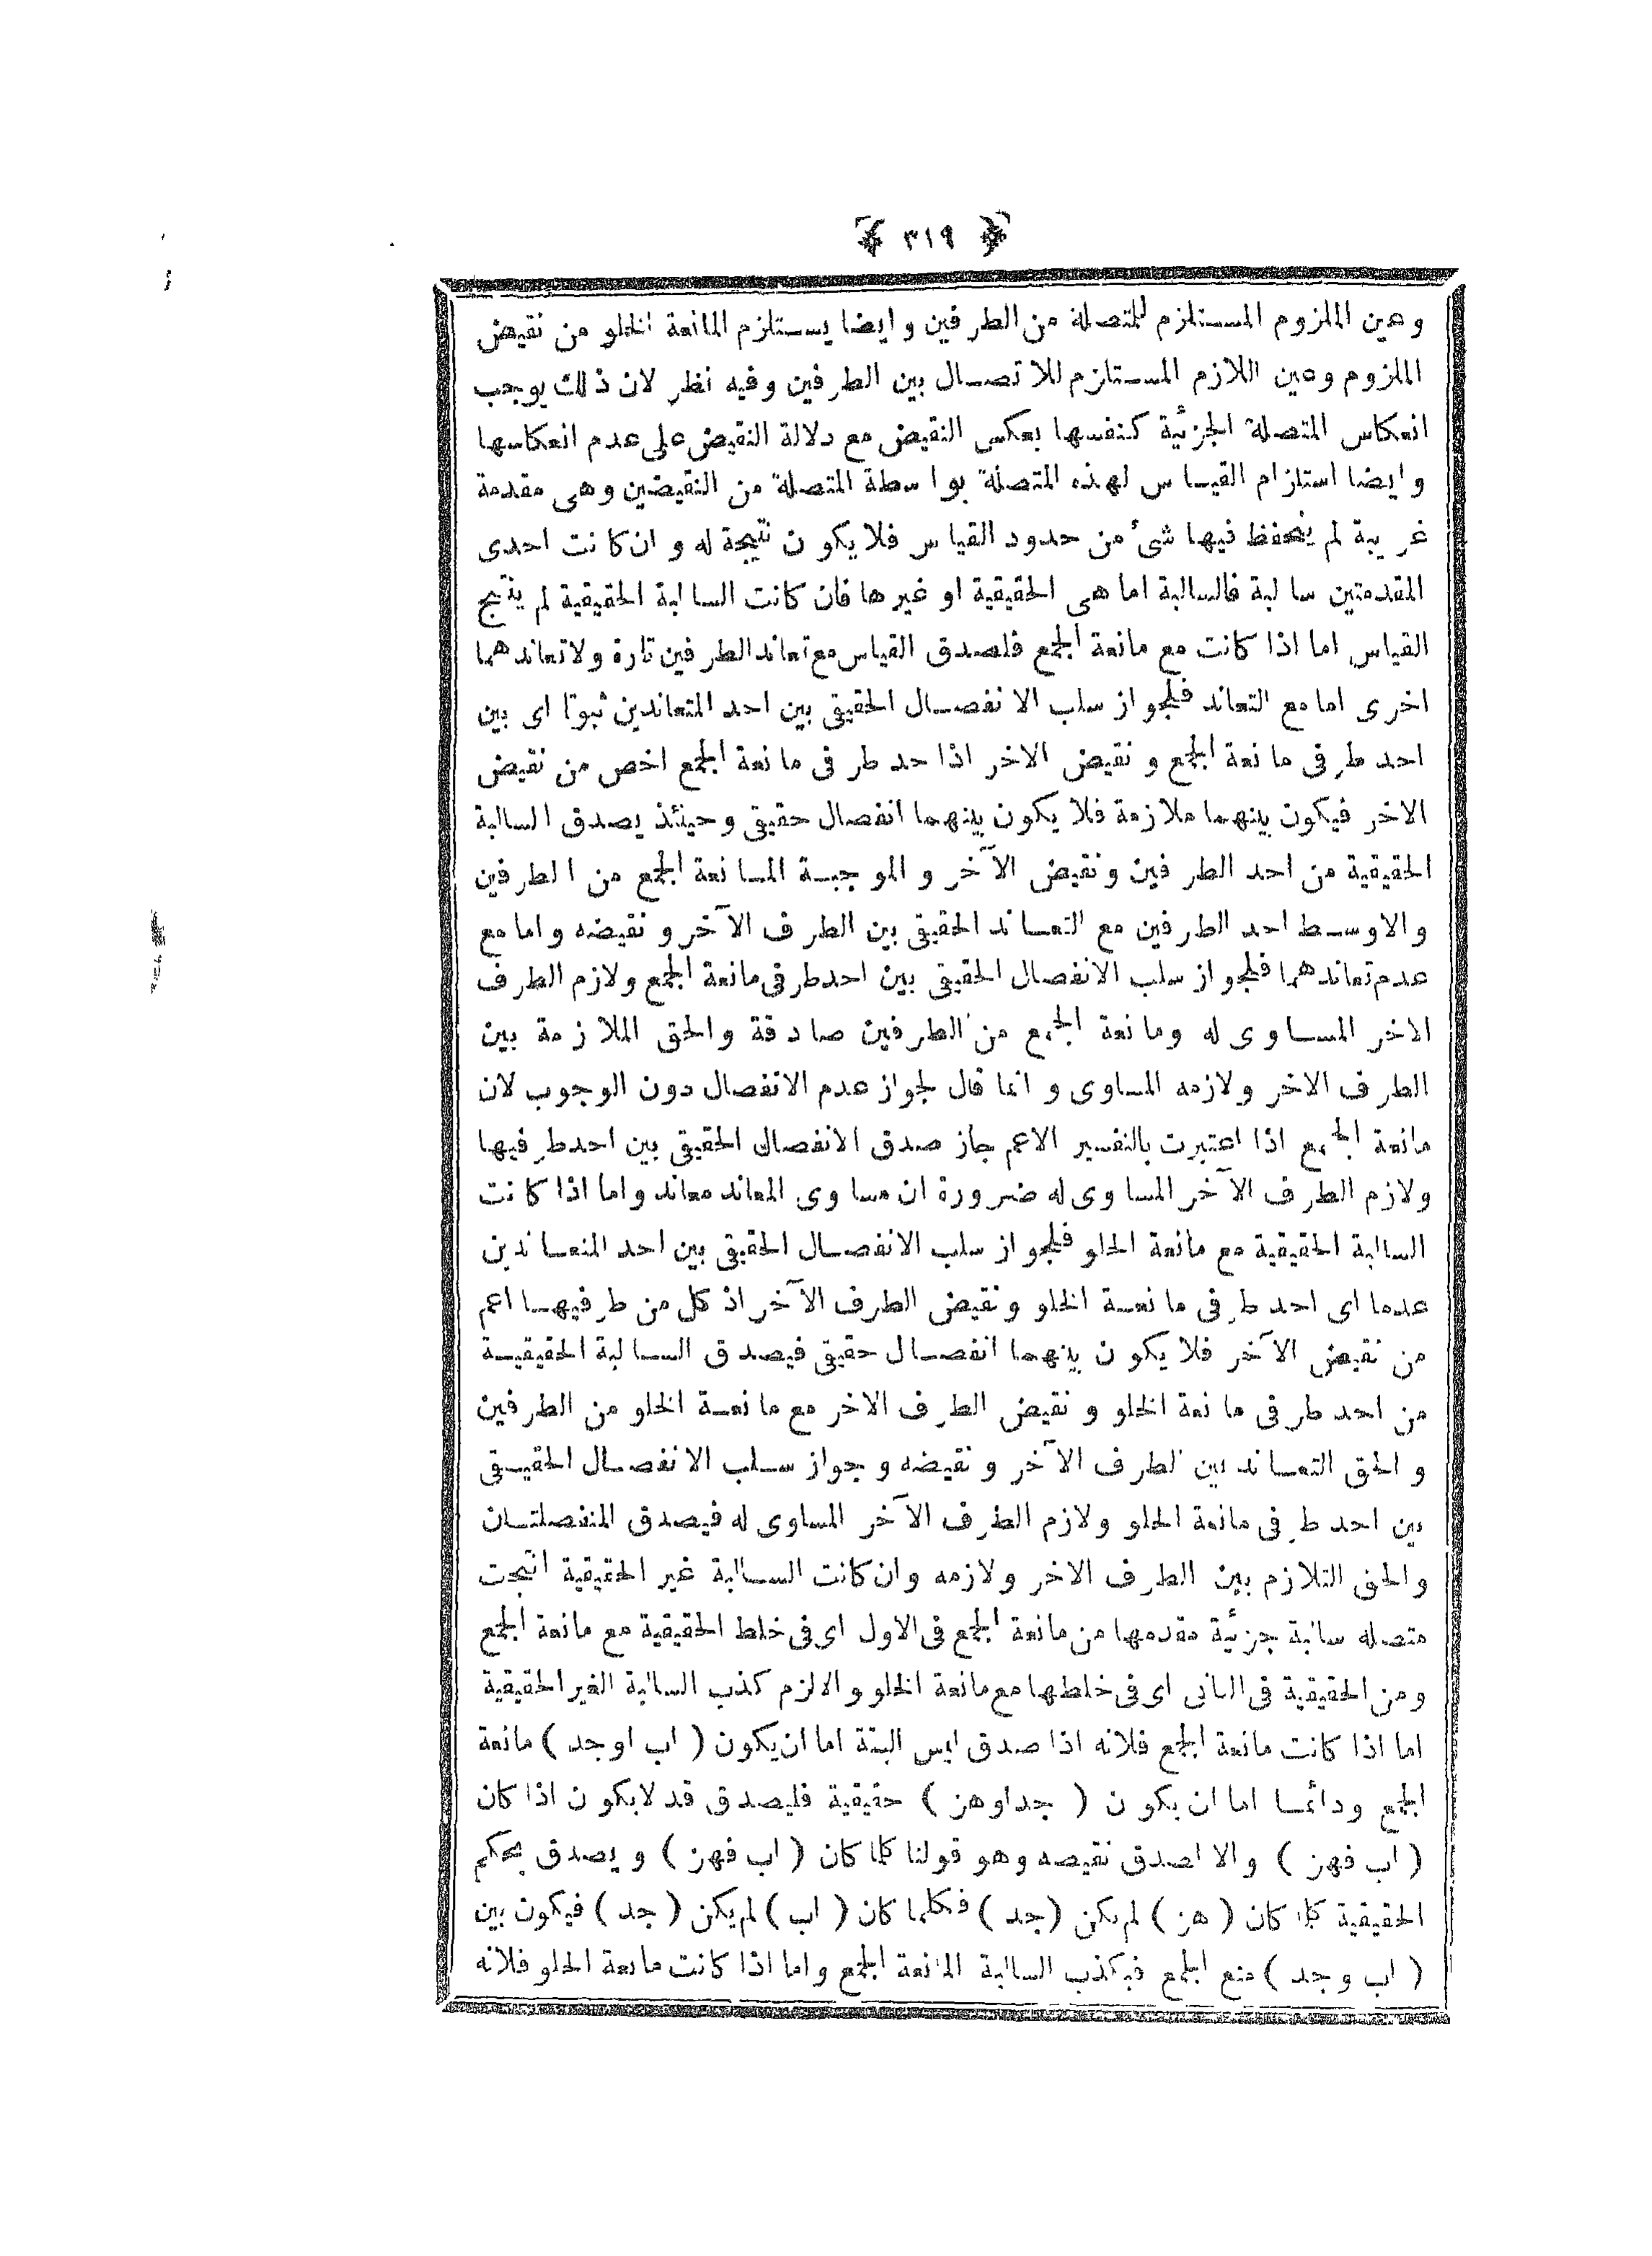 ﴿ ٣١٩ ﴾
وعين الملزوم المستلزم للمتصلة من الطرفين وايضا يستلزم المانعة الخلو من نقيض
الملزوم وعين اللازم المستلزم للاتصال بين الطرفين وفيه نظر لان ذلك يوجب
انعكاس المتصلة الجزئية كنفسها بعكس النقيض مع دلالة النقيض على عدم انعكاسها
وايضا استلزام القياس لهذه المتصلة بواسطة المتصلة من النقيضين وهى مقدمة
غريبة لم ينحفظ فيها شئ من حدود القياس فلا يكون نتيجة له وان كانت احدى
المقدمتين سالبة فالسالبة اما هى الحقيقية او غيرها فان كانت السالبة الحقيقية لم ينتج
القياس اما اذا كانت مع مانعة الجمع فلصدق القياس مع تعاند الطرفين تارة ولا تعاندهما
اخرى اما مع التعاند فلجواز سلب الانفصال الحقيقى بين احد المتعاندين ثبوتا اى بين
احد طرفى مانعة الجمع ونقيض الاخر اذا حد طرفى مانعة الجمع اخص من نقيض
الاخر فيكون بينهما ملازمة فلا يكون بينهما انفصال حقيقى وحينئذ يصدق السالبة
الحقيقية من احد الطرفين ونقيض الآخر والموجبة المانعة الجمع من الطرفين
والاوسط احد الطرفين مع التعاند الحقيقى بين الطرف الآخر ونقيضه واما مع
عدم تعاندهما فلجواز سلب الانفصال الحقيقى بين احد طرفى مانعة الجمع ولازم الطرف
الاخر المساوى له ومانعة الجمع من الطرفين صادقة والحق الملازمة بين
الطرف الاخر ولازمه المساوى وانما قال لجواز عدم الانفصال دون الوجوب لان
مانعة الجمع اذا اعتبرت بالتفسير الاعم جاز صدق الانفصال الحقيقى بين احد طرفيها
ولازم الطرف الآخر المساوى له ضرورة ان مساوى المعاند معاند واما اذا كانت
السالبة الحقيقية مع مانعة الخلو فلجواز سلب الانفصال الحقيقى بين احد المتعاندين
عدما اى احد طرفى مانعة الخلو ونقيض الطرف الآخر اذ كل من طرفيها اعم
من نقيض الآخر فلا يكون بينهما انفصال حقيقى فيصدق السالبة الحقيقية
من احد طرفى مانعة الخلو ونقيض الطرف الاخر مع مانعة الخلو من الطرفين
والحق التعاند بين الطرف الآخر ونقيضه وجواز سلب الانفصال الحقيقى
بين احد طرفى مانعة الخلو ولازم الطرف الآخر المساوى له فيصدق المنفصلتان
والحق التلازم بين الطرف الاخر ولازمه وان كانت السالبة غير الحقيقية انتجت
متصله سالبة جزئية مقدمها من مانعة الجمع فى الاول اى فى خلط الحقيقية مع مانعة الجمع
ومن الحقيقية فى الثانى اى فى خلطها مع مانعة الخلو والا لزم كذب السالبة الغير الحقيقية
اما اذا كانت مانعة الجمع فلانه اذا صدق ليس البتة اما ان يكون ( اب او جد ) مانعة
الجمع ودائما اما ان يكون ( جد او هز ) حقيقية فليصدق قد لا يكون اذا كان
( اب فهز ) والا لصدق نقيضه وهو قولنا كلما كان ( اب فهز ) ويصدق بحكم
الحقيقية كلما كان ( هز ) لم يكن ( جد ) فكلما كان ( اب ) لم يكن ( جد ) فيكون بين
( اب وجد ) منع الجمع فيكذب السالبة المانعة الجمع واما اذا كانت مانعة الخلو فلانه